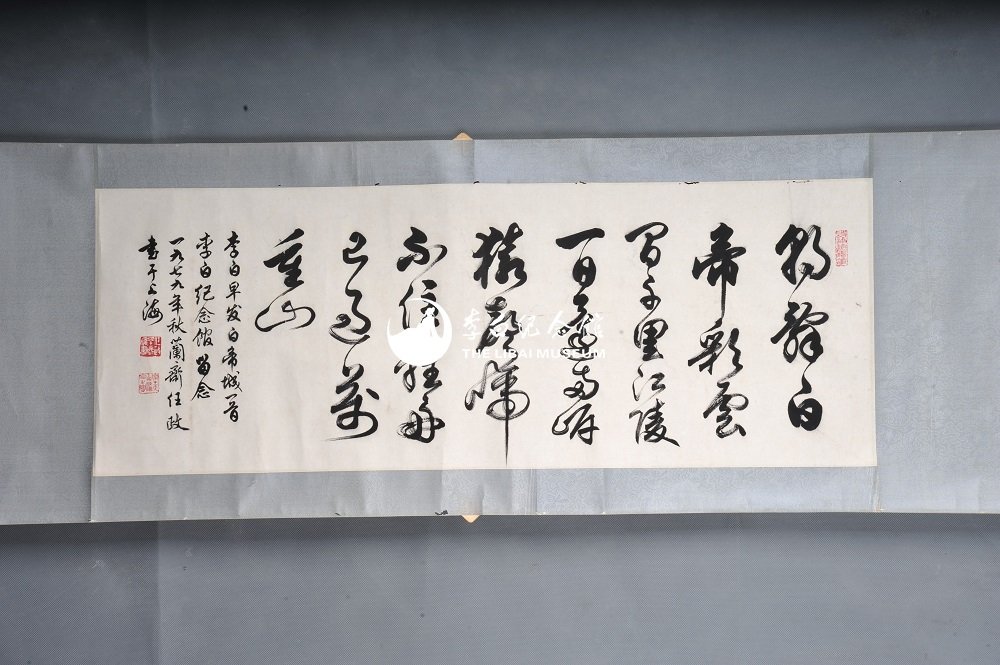 朝辭白
帝彩雲
間千里江陵
一日還兩岸
猿聲啼
不住輕舟
已過萬
重山
李白早发白帝城一首
李白纪念馆留念
一九七九年秋蘭齋任政
书于上海
李白纪念馆
THE LIBAI MUSEUM